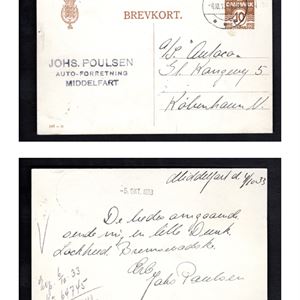 BREVKORT.
DANMARK
10
JOHS. POULSEN
AUTO-FORRETNING
MIDDELFART
A/S "Autocar"
Gl. Kongevej 5
København V.
Middelfart d. 4/10 33
-5. OKT. 1933
De bedes omgaaende
sende mig en lille Dunk
Lockheed Bremsevædske.
Erb.
Johs Poulsen
64745